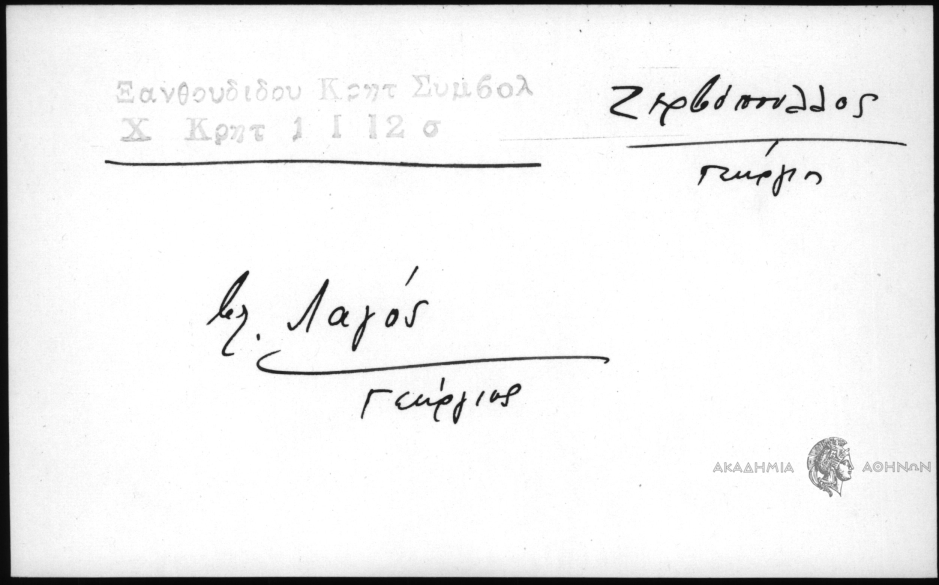 Ξανθουδιδου Κρητ Συμβολ
Χ Κρητ 1 Ι 12 σ
Ζερβόπουλλος
Γεώργιος
βλ. Λαγός
Γεώργιος
ΑΚΑΔΗΜΙΑ ΑΘΗΝΩΝ